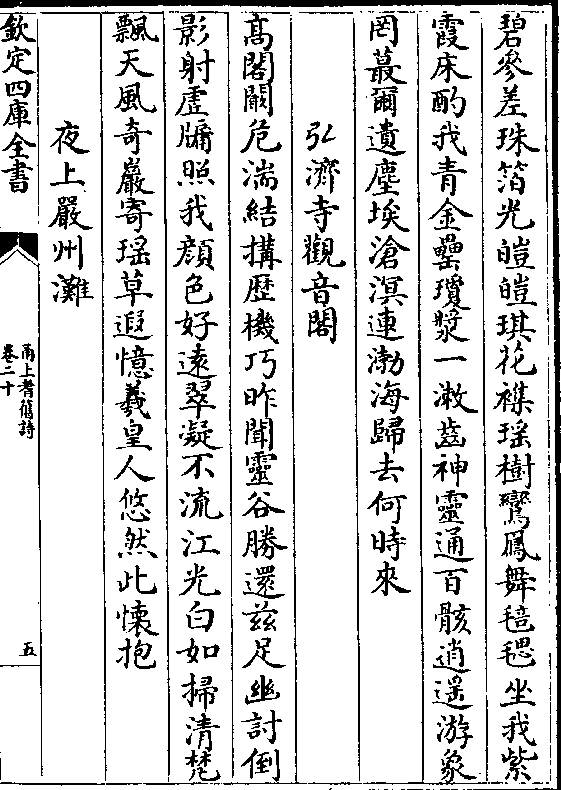 碧參差珠箔光皚皚琪花襍瑶樹鸞鳳舞毰毸坐我紫
霞床酌我青金罍瓊漿一潄齒神靈通百骸逍遥游象
罔蕞爾遺塵埃滄溟連渤海歸去何時來
弘濟寺觀音閣
髙閣闞危湍結搆歴機巧昨聞靈谷勝還兹足幽討倒
影射虚牖照我顔色好遠翠凝不流江光白如掃清梵
飄天風奇巖寄瑶草遐憶羲皇人悠然此懐抱
夜上嚴州灘
欽定四庫全書
甬上耆舊詩
卷二十
五